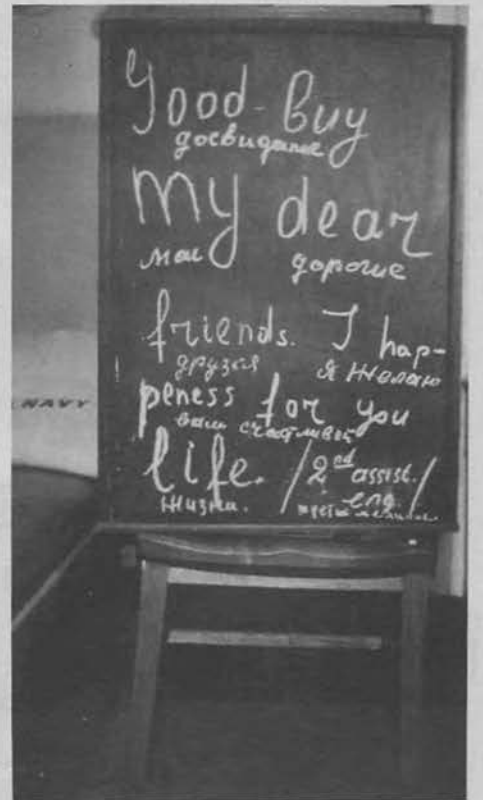 Good-buy
досвидание
my dear
мои дорогие
friends. I hap-
друзья я желаю
peness for you
вам счастливой
life. /2nd assist./
жизни. eng.
NAVY